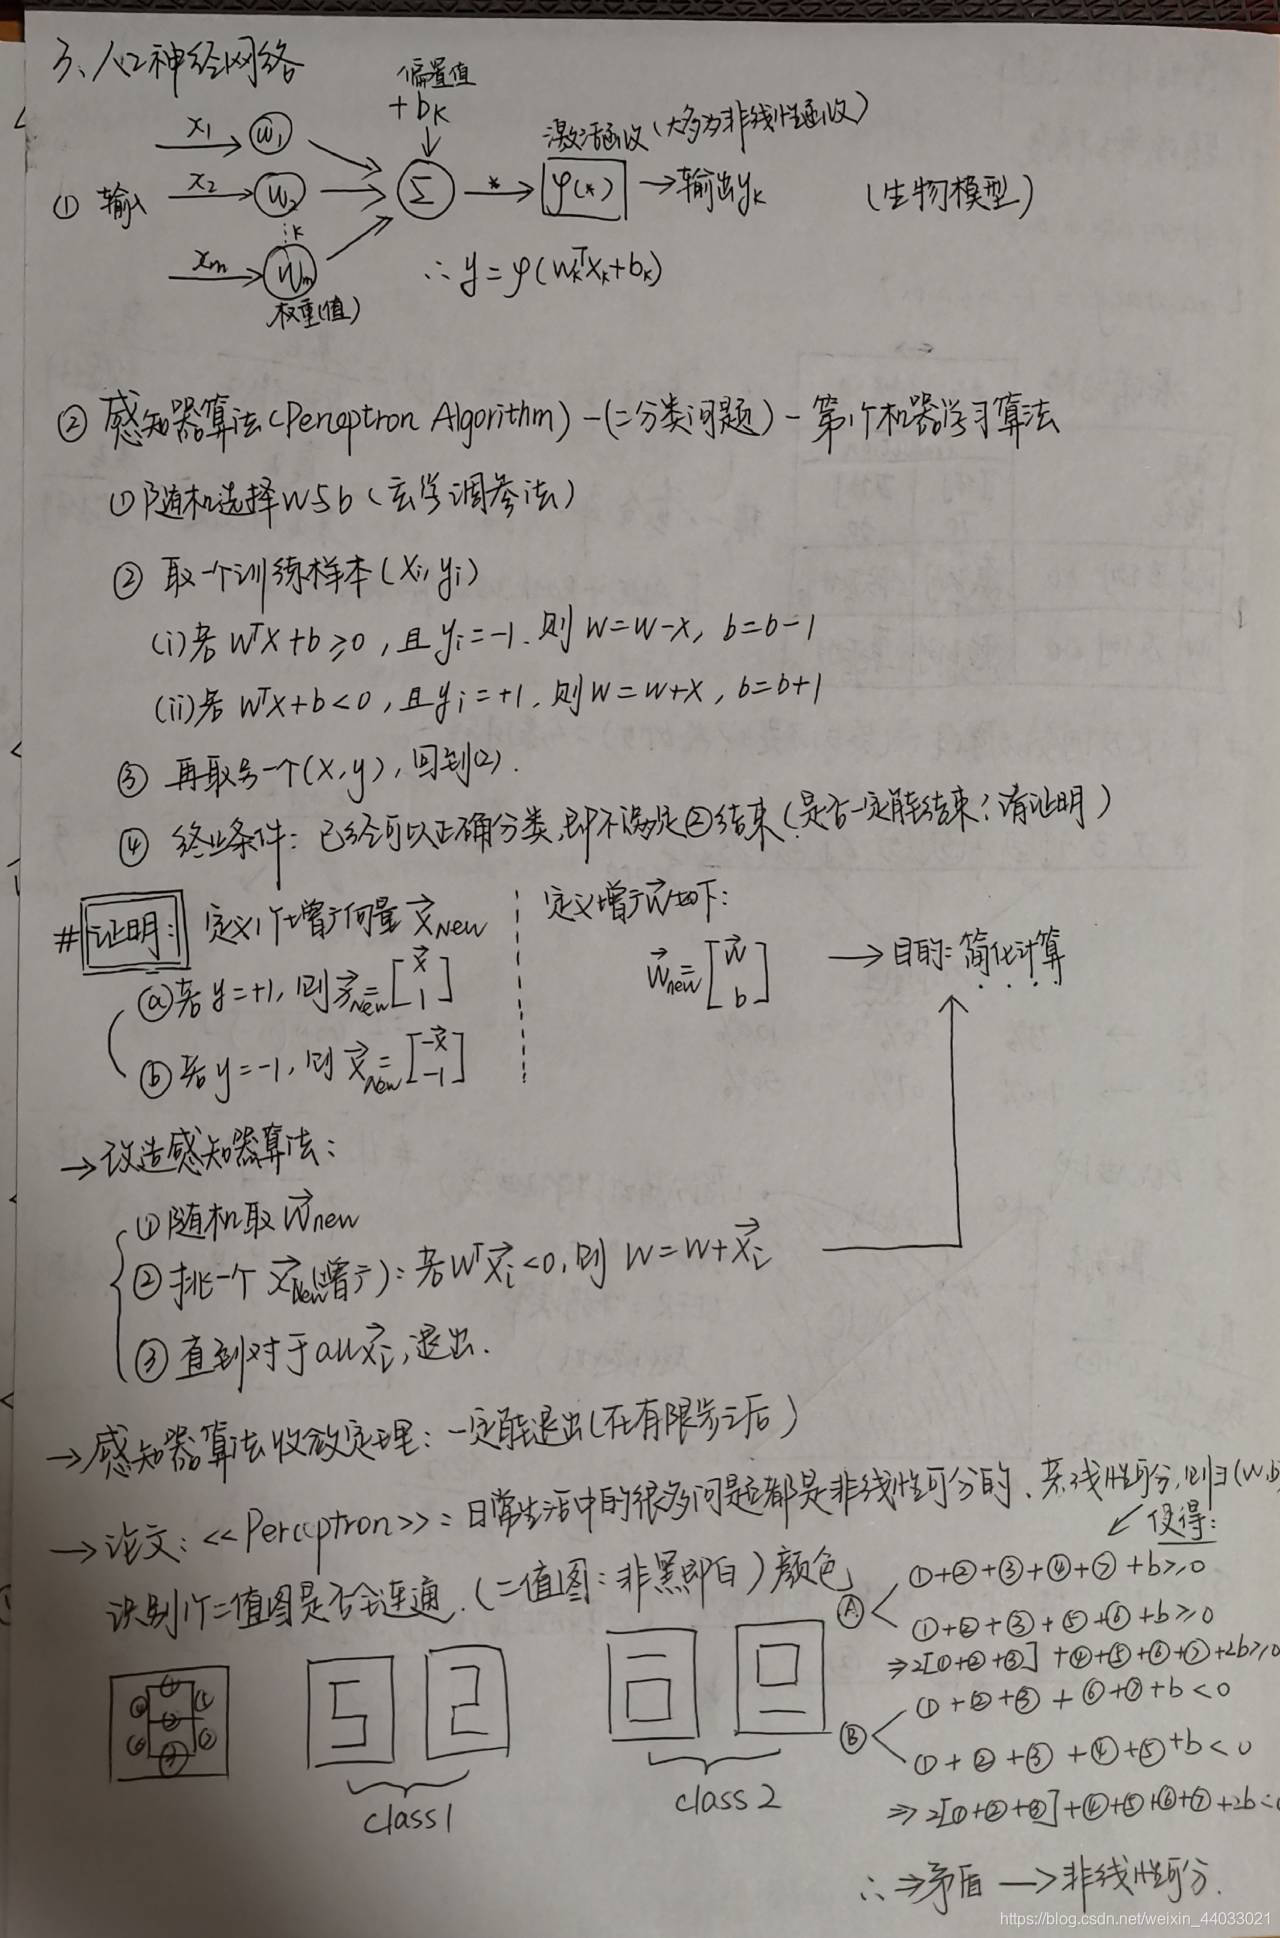 3、人工神经网络
偏置值
+bK
激活函数(大多为非线性函数)
① 输入
x1 w1
x2 w2
⋮k
xm wm
权重(值)
Σ * → φ(*) → 输出yK
(生物模型)
∴ y = φ(wkᵀxk+bk)
② 感知器算法(Perceptron Algorithm) - (二分类问题) - 第1个机器学习算法
① 随机选择W与b(玄学调参法)
② 取一个训练样本(xi, yi)
(i) 若 WᵀX+b≥0, 且 yi=-1. 则 W=W-X, b=b-1
(ii) 若 WᵀX+b<0, 且 yi=+1. 则 W=W+X, b=b+1
③ 再取另一个(X, y), 回到(2).
④ 终止条件: 已经可以正确分类, 即不满足②结束(是否一定能结束? 请证明)
# 证明: 定义1个增广向量 X⃗New
定义增广W⃗如下:
ⓐ 若 y=+1, 则 X⃗New = [x⃗ 1]
W⃗new = [w⃗ b] → 目的: 简化计算
ⓑ 若 y=-1, 则 X⃗New = [-x⃗ -1]
→ 改造感知器算法:
① 随机取 W⃗new
② 挑一个 X⃗New(增广): 若 WᵀX⃗i<0, 则 W=W+X⃗i
③ 直到对于all X⃗i, 退出.
→ 感知器算法收敛定理: 一定能退出(在有限步之后)
→ 论文: <<Perceptron>>: 日常生活中的很多问题都是非线性可分的. 若线性可分, 则∃(W,b)
使得:
识别1个二值图是否全连通. (二值图: 非黑即白) 颜色
Ⓐ ①+②+③+④+⑦+b≥0
①+②+③+⑤+⑥+b≥0
⇒ 2[①+②+③]+④+⑤+⑥+⑦+2b≥0
Ⓑ ①+②+③+⑥+⑦+b<0
①+②+③+④+⑤+b<0
⇒ 2[①+②+③]+④+⑤+⑥+⑦+2b<0
class 1
class 2
∴ ⇒ 矛盾 → 非线性可分.
https://blog.csdn.net/weixin_44033021